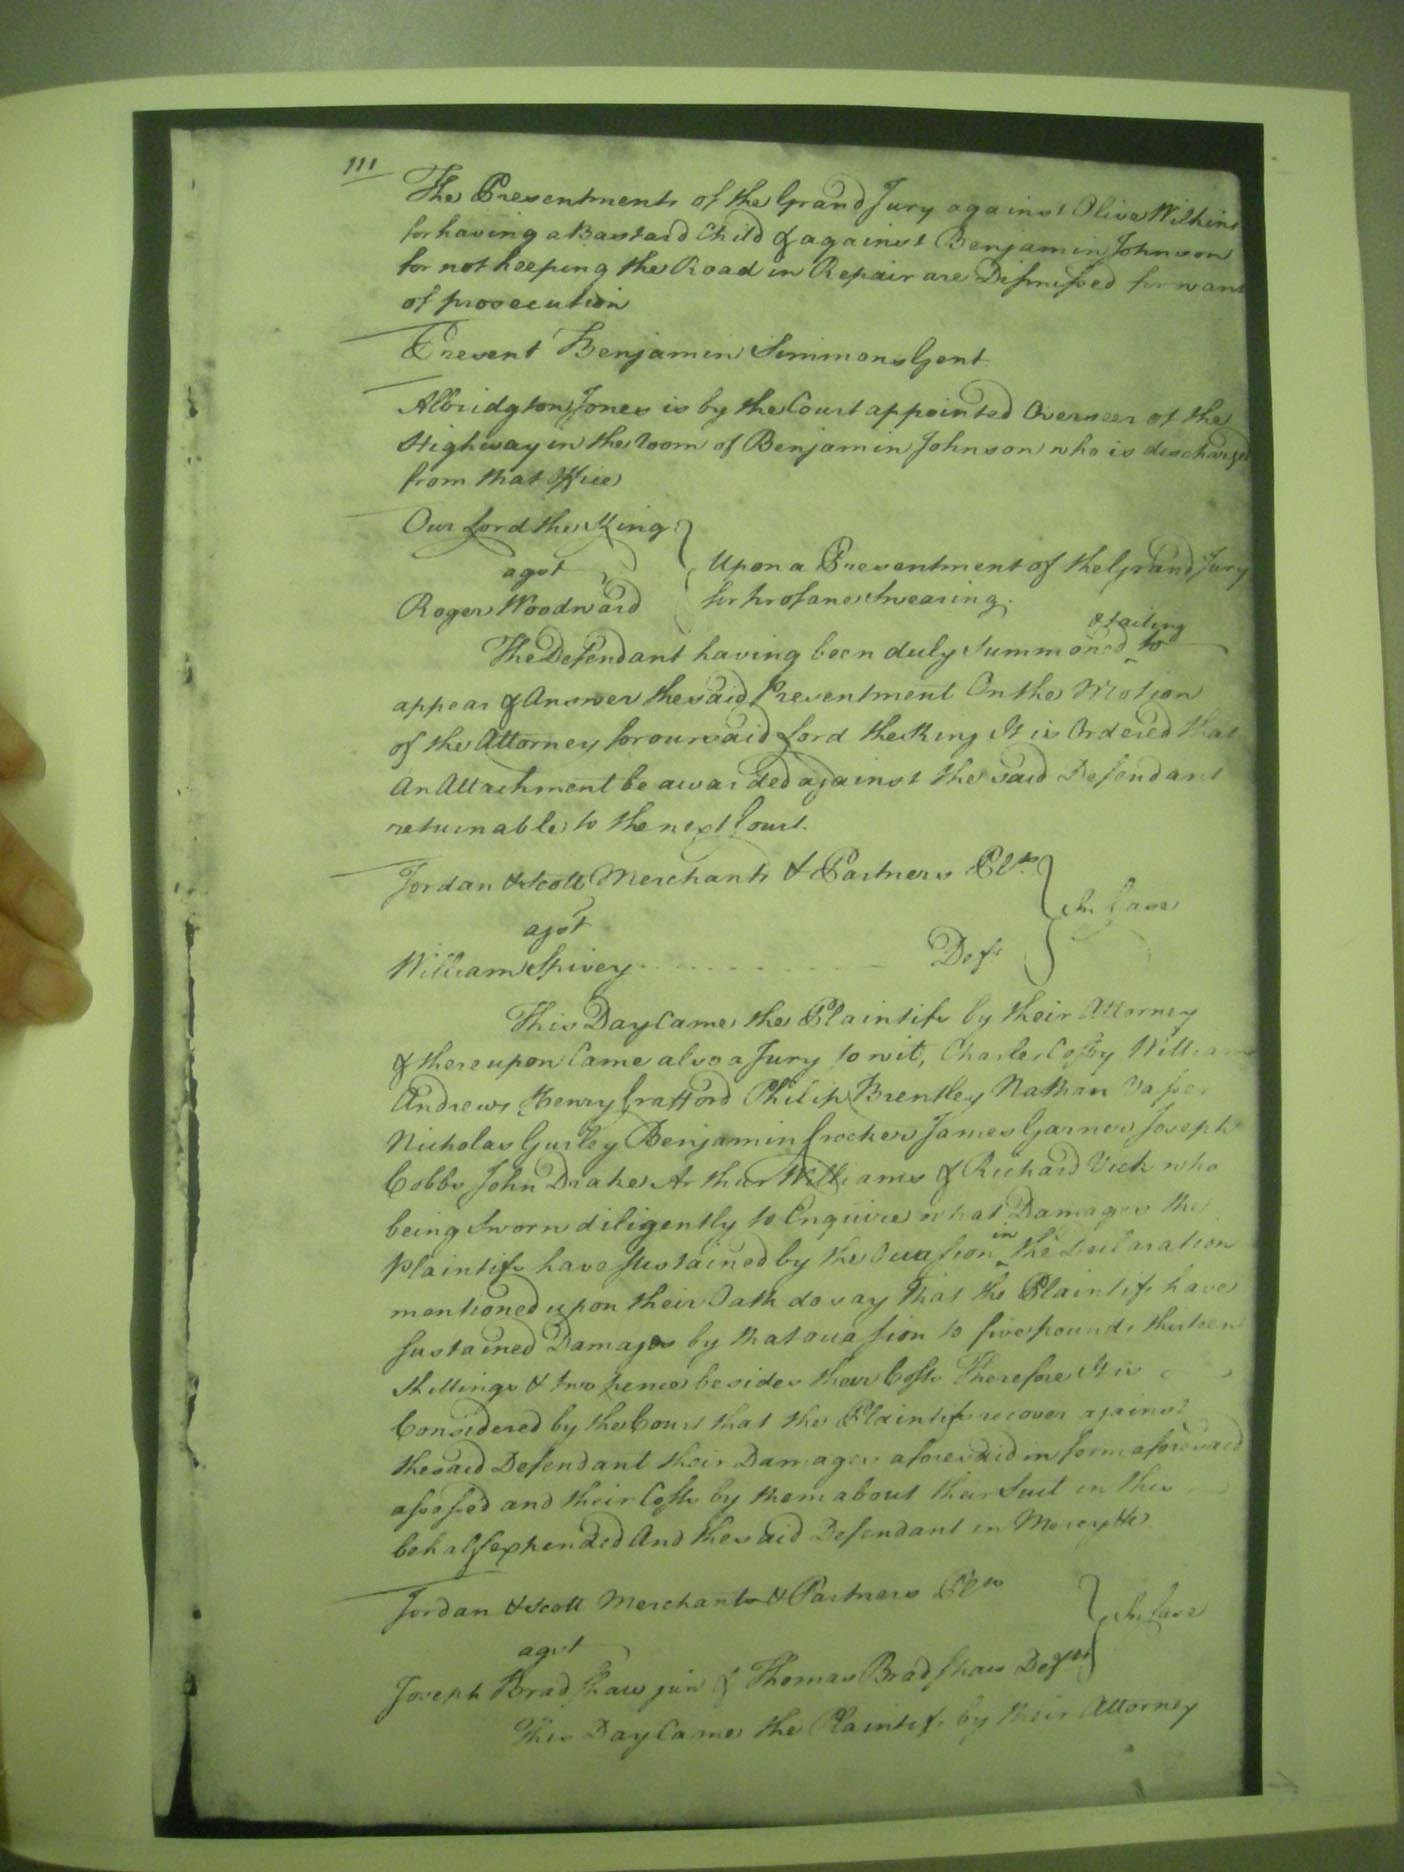 111
The Presentments of the Grand Jury against Olive Wilkins
for having a Bastard Child & against Benjamin Johnson
for not keeping the Road in Repair are Dismissed for want
of prosecution
Present Benjamin Simmons Gent.
Albridgton Jones is by the Court appointed Overseer of the
Highway in the room of Benjamin Johnson who is discharged
from that Office
Our Lord the King
agst
Roger Woodward
Upon a Presentment of the Grand Jury
for profane Swearing.
& failing
The Defendant having been duly Summoned to
appear & Answer the said Presentment On the Motion
of the Attorney for our said Lord the King It is Ordered that
An Attachment be awarded against the said Defendant
returnable to the next Court.
Jordan & Scott Merchants & Partners Plts
In Case
agst
William Spivey Deft
This Day Came the Plaintifs by their Attorney
& thereupon Came also a Jury to wit, Charles Cosby William
Andrews Henry Crafford Philip Brentley Nathan Vasser
Nicholas Gurley Benjamin Crocker James Garner Joseph
Cobbs John Drake Arthur Williams & Richard Vick who
being Sworn diligently to Enquire what Damages the
in
Plaintifs have sustained by the Ocasion the Declaration
mentioned upon their Oath do say that the Plaintifs have
sustained Damages by that ocasion to five pounds thirteen
Shillings & two pence besides their Costs Therefore It is
Considered by the Court that the Plaintifs recover against
the said Defendant their Damages aforesaid in form aforesaid
assessed and their Costs by them about their Suit in this
behalf expended And the said Defendant in Mercy &c
Jordan & Scott Merchants & Partners Plts
In Case
agst
Joseph Bradshaw jun & Thomas Bradshaw Defts
This Day Came the Plaintifs by their Attorney